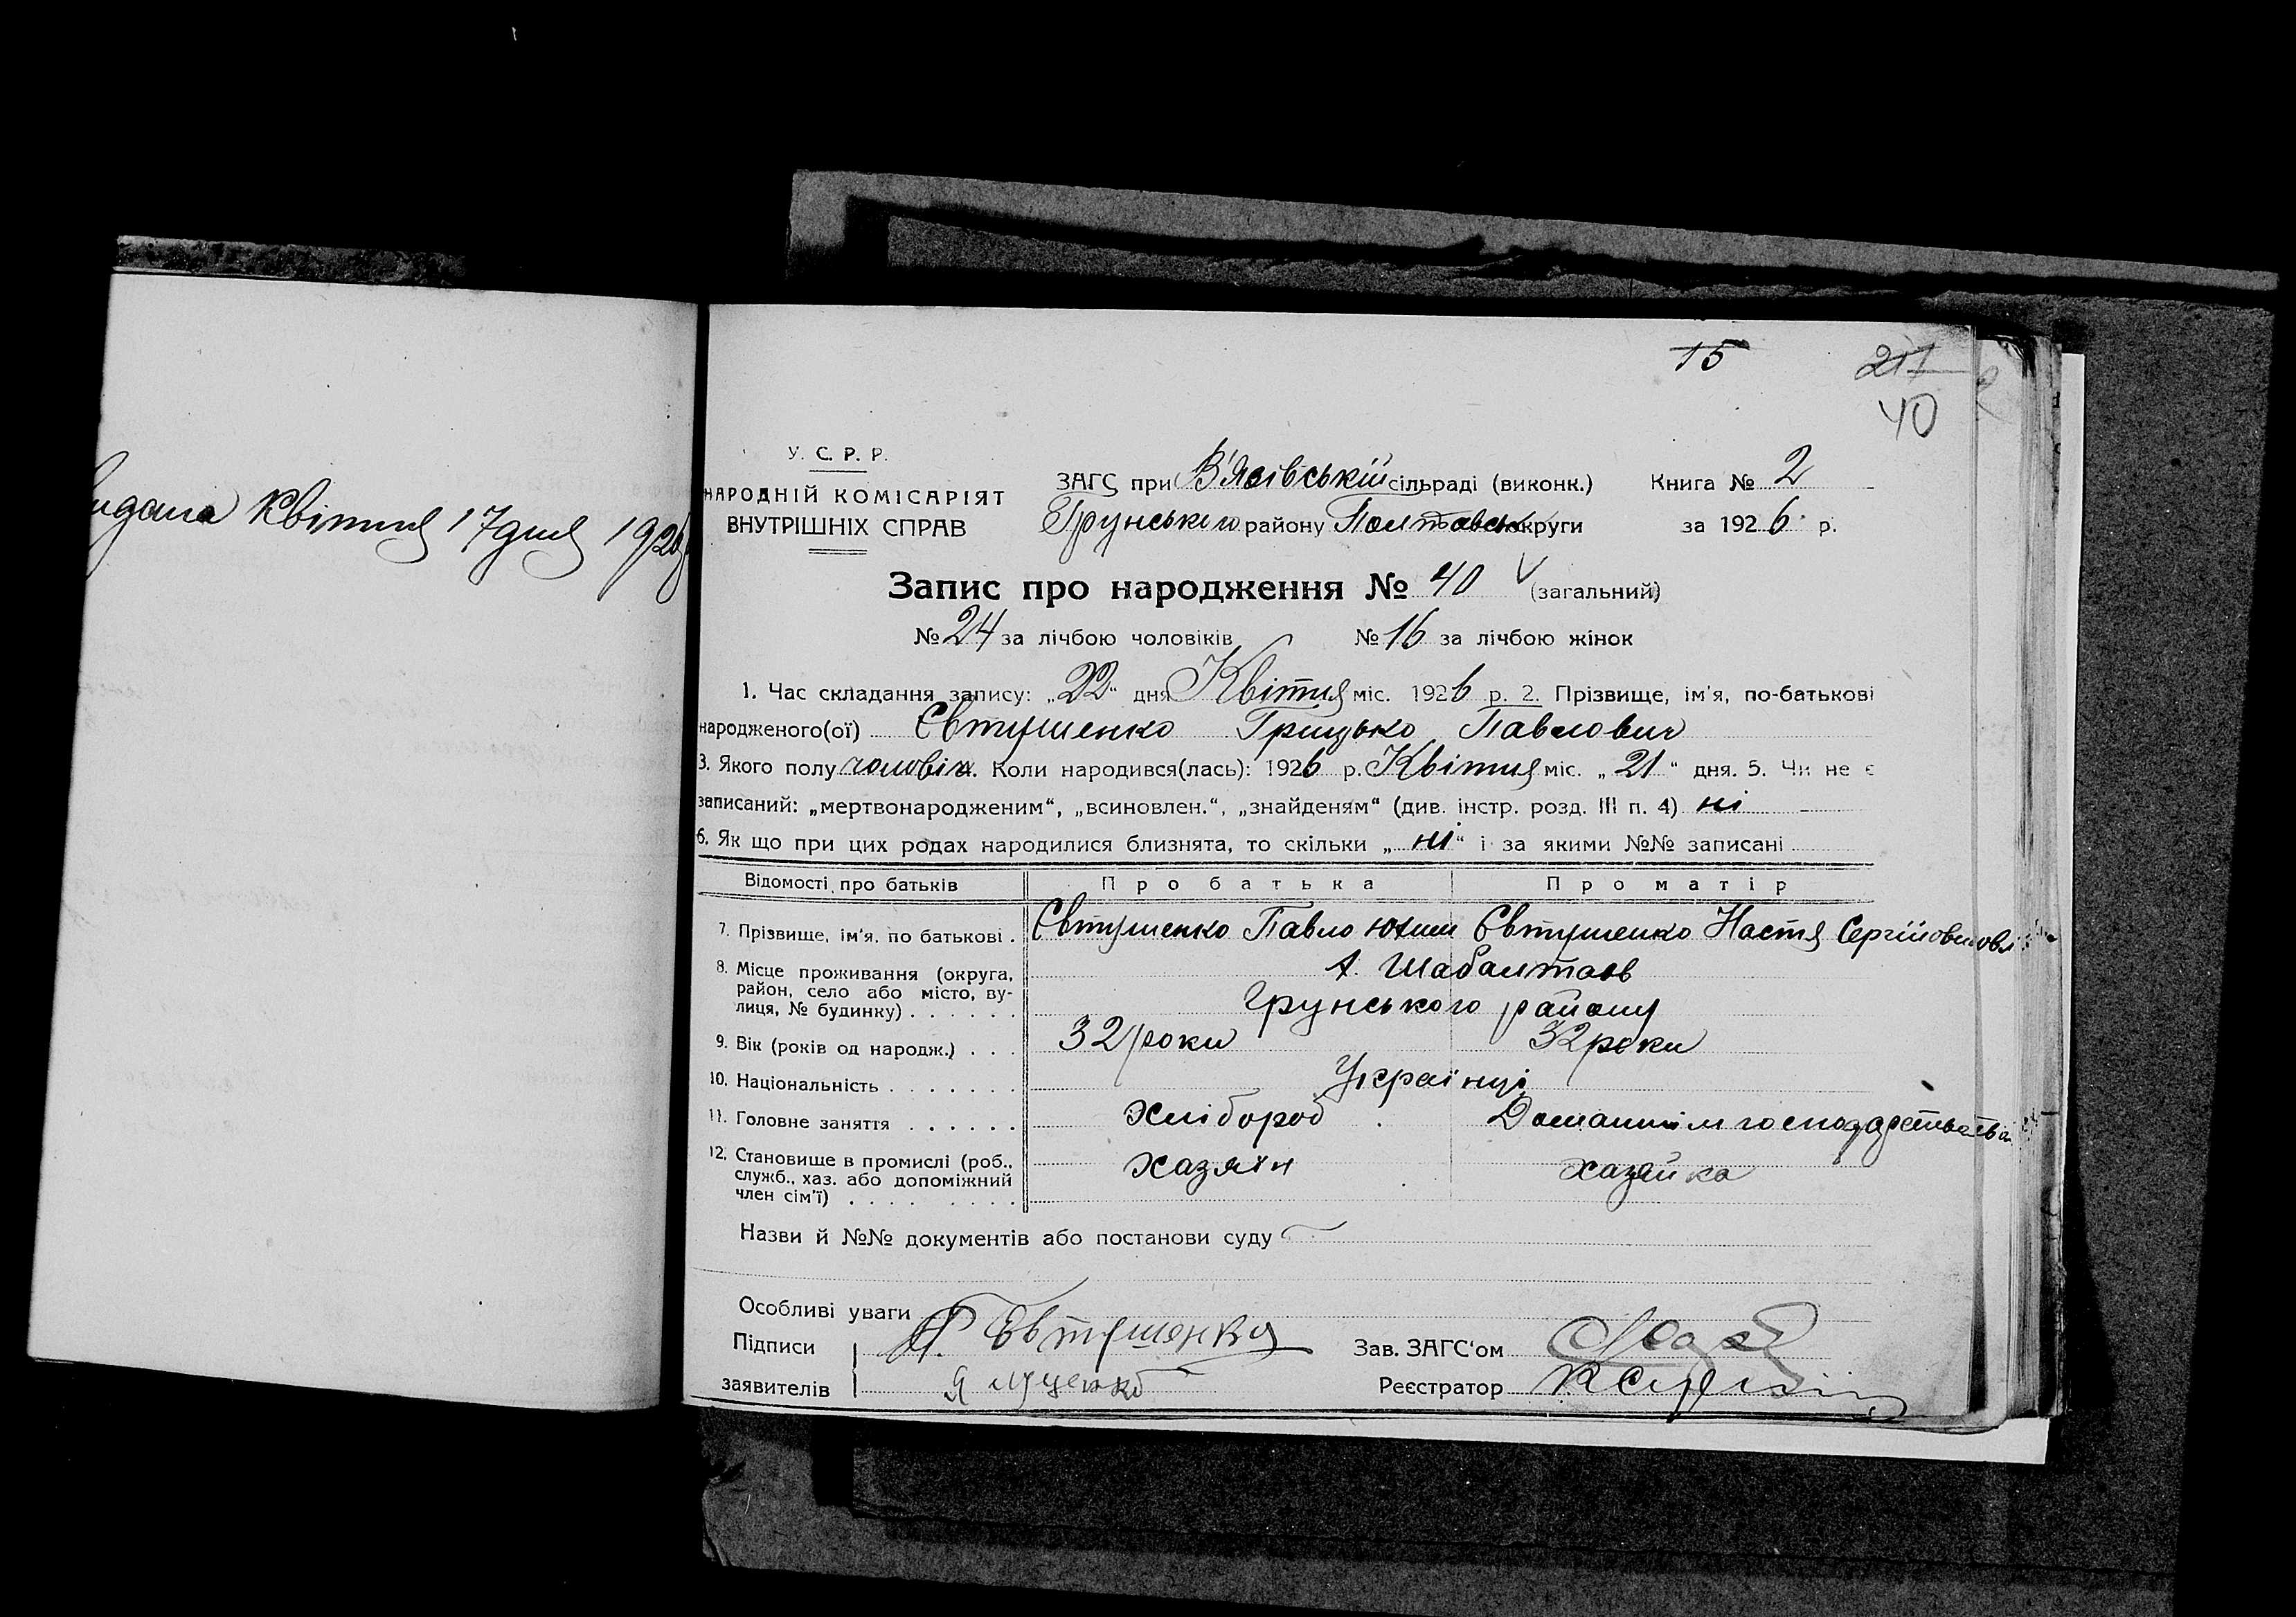 Квітня 17 дня 192
15
211
40
У. С. Р. Р.
НАРОДНІЙ КОМІСАРІЯТ
ВНУТРІШНІХ СПРАВ
ЗАГС при В'язівській сільраді (виконк.) Книга № 2
Грунського району Полтавськ округи за 1926 р.
Запис про народження № 40 (загальний)
№ 24 за лічбою чоловіків № 16 за лічбою жінок
1. Час складання запису: „22“ дня Квітня міс. 1926 р. 2. Прізвище, ім'я, по-батькові
народженого(ої) Євтушенко Грицько Павлович
3. Якого полу чоловіч. Коли народився(лась): 1926 р. Квітня міс. „21“ дня. 5. Чи не є
записаний: „мертвонародженим“, „всиновлен.“, „знайденям“ (див. інстр. розд. III п. 4) ні
6. Як що при цих родах народилися близнята, то скільки „ні“ і за якими №№ записані
Відомості про батьків Про батька Про матір
7. Прізвище, ім'я, по батькові . Євтушенко Павло Юхим Євтушенко Настя
8. Місце проживання (округа, район, село або місто, ву-
лиця, № будинку) . . . . . . Грунського району
9. Вік (років од народж.) . . . 32 роки 32 роки
10. Національність . . . . . . . Українці
11. Головне заняття . . . . . . Хлібороб
12. Становище в промислі (роб., Хазяїн Хазяйка
служб., хаз. або допоміжний
член сім'ї) . . . . . . . .
Назви й №№ документів або постанови суду
Особливі уваги
Підписи П. Євтушенко Зав. ЗАГС'ом
заявителів Я Луценко Реєстратор